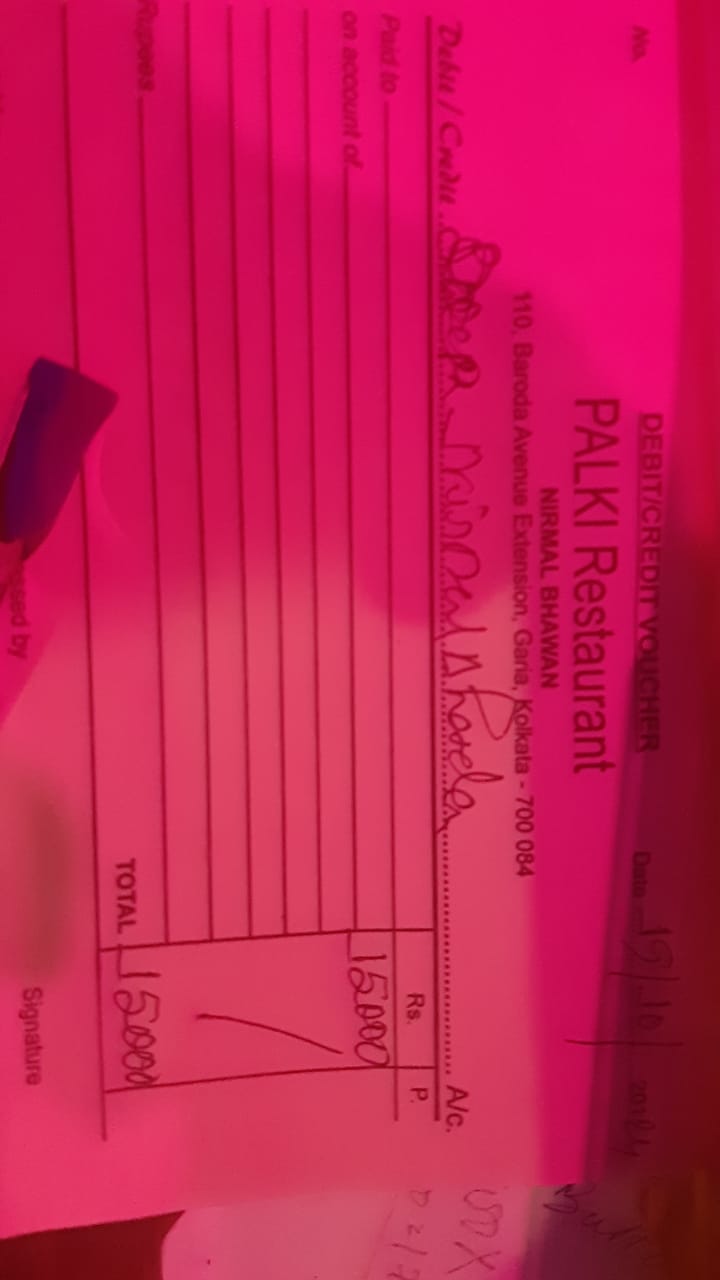 No.
DEBIT/CREDIT VOUCHER
Date 19/10/2024
PALKI Restaurant
NIRMAL BHAWAN
110, Baroda Avenue Extension, Garia, Kolkata - 700 084
Debit / Credit A/c.
Paid to Rs. P.
on account of 15000
Rupees TOTAL 15000
ssed by
Signature